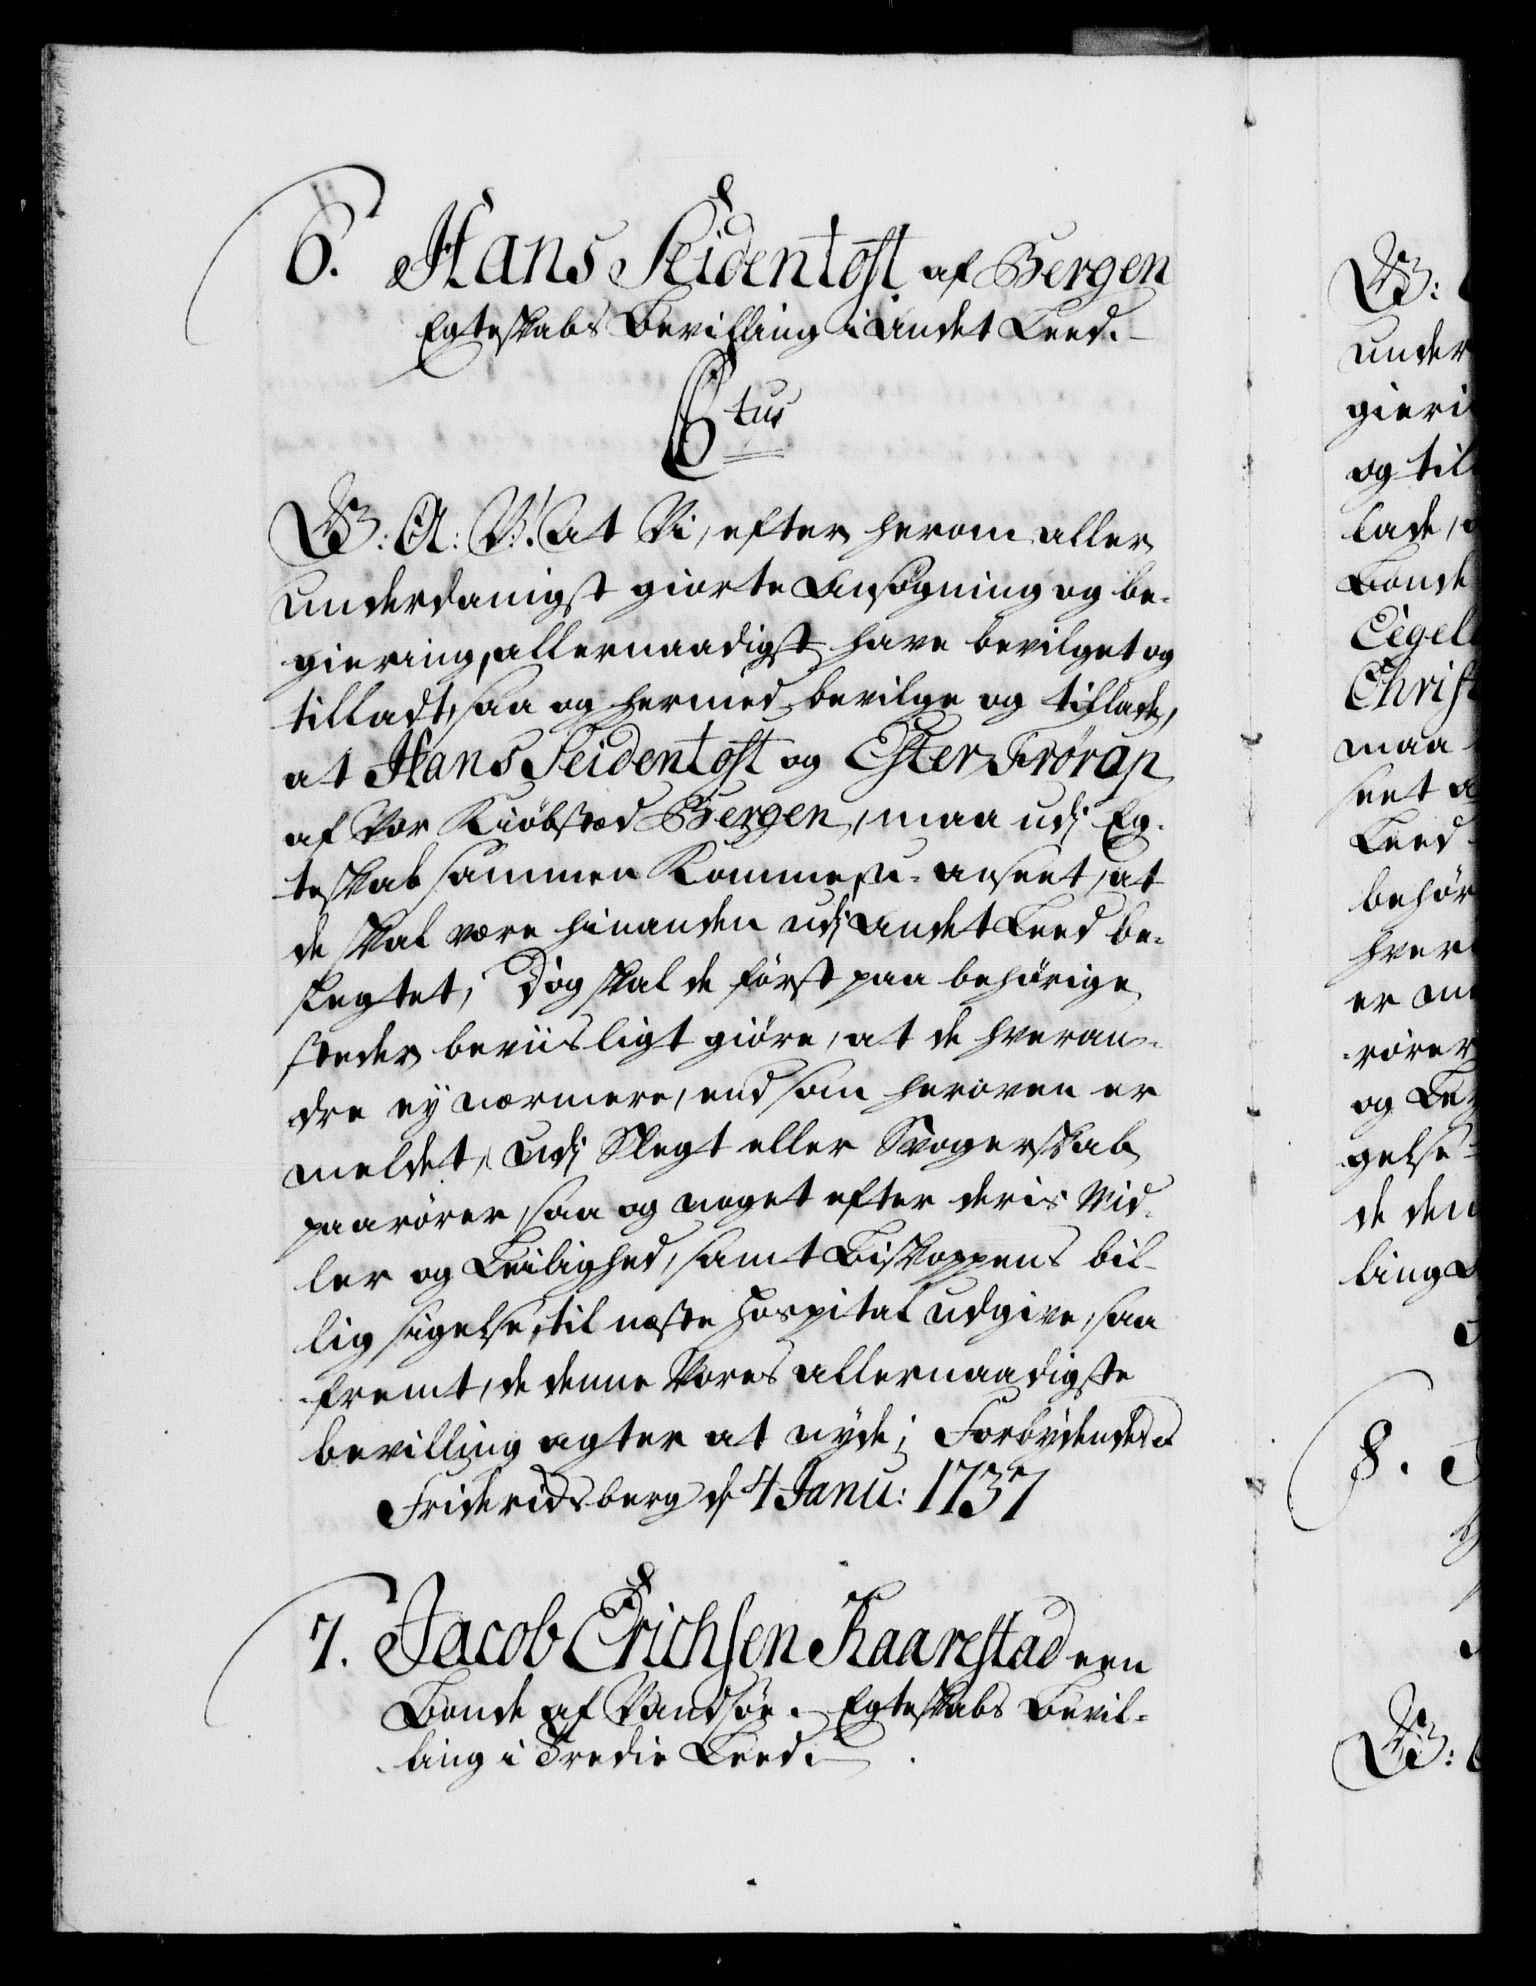 6. Hans Seidentopf af Bergen
Egteskabs Bevilling i andet Leed.
Ctus
G: A: V: At Vi, efter herom aller
underdanigst giorte Ansøgning og be-
giering, allernaadigst have bevilget og
tilladt, saa og hermed bevilge og tillade,
at Hans Seidentopf og Ester Frörup
af Vor Kiøbsted Bergen, maa udi Eg-
teskab sammen Komme, u-anseet, at
de skal være hinanden udi andet Leed be-
slegtet; Dog skal de først paa behørige
steder beviisligt giøre, at de hveran-
dre ey nærmere, end som heroven er
meldet, udi Slegt eller Svogerskab
paarører, saa og noget efter deris Mid-
ler og Leilighed, samt Biskoppens bil-
lig sigelse, til næste Hospital udgive, saa
fremt, de denne Vores allernaadigste
bevilling agter at nyde; Forbydendes
Friderichsberg d. 4 Janu: 1737
7. Jacob Erichsen Kaarestad een
Bonde af Vandsøe. Egteskabs Bevil-
ling i Tredie Leed.
under
og til
lade,
Bonde
Christ
maa
seet
Leed
behør
hver
er
rører
og
gelse
de den
ling
8.